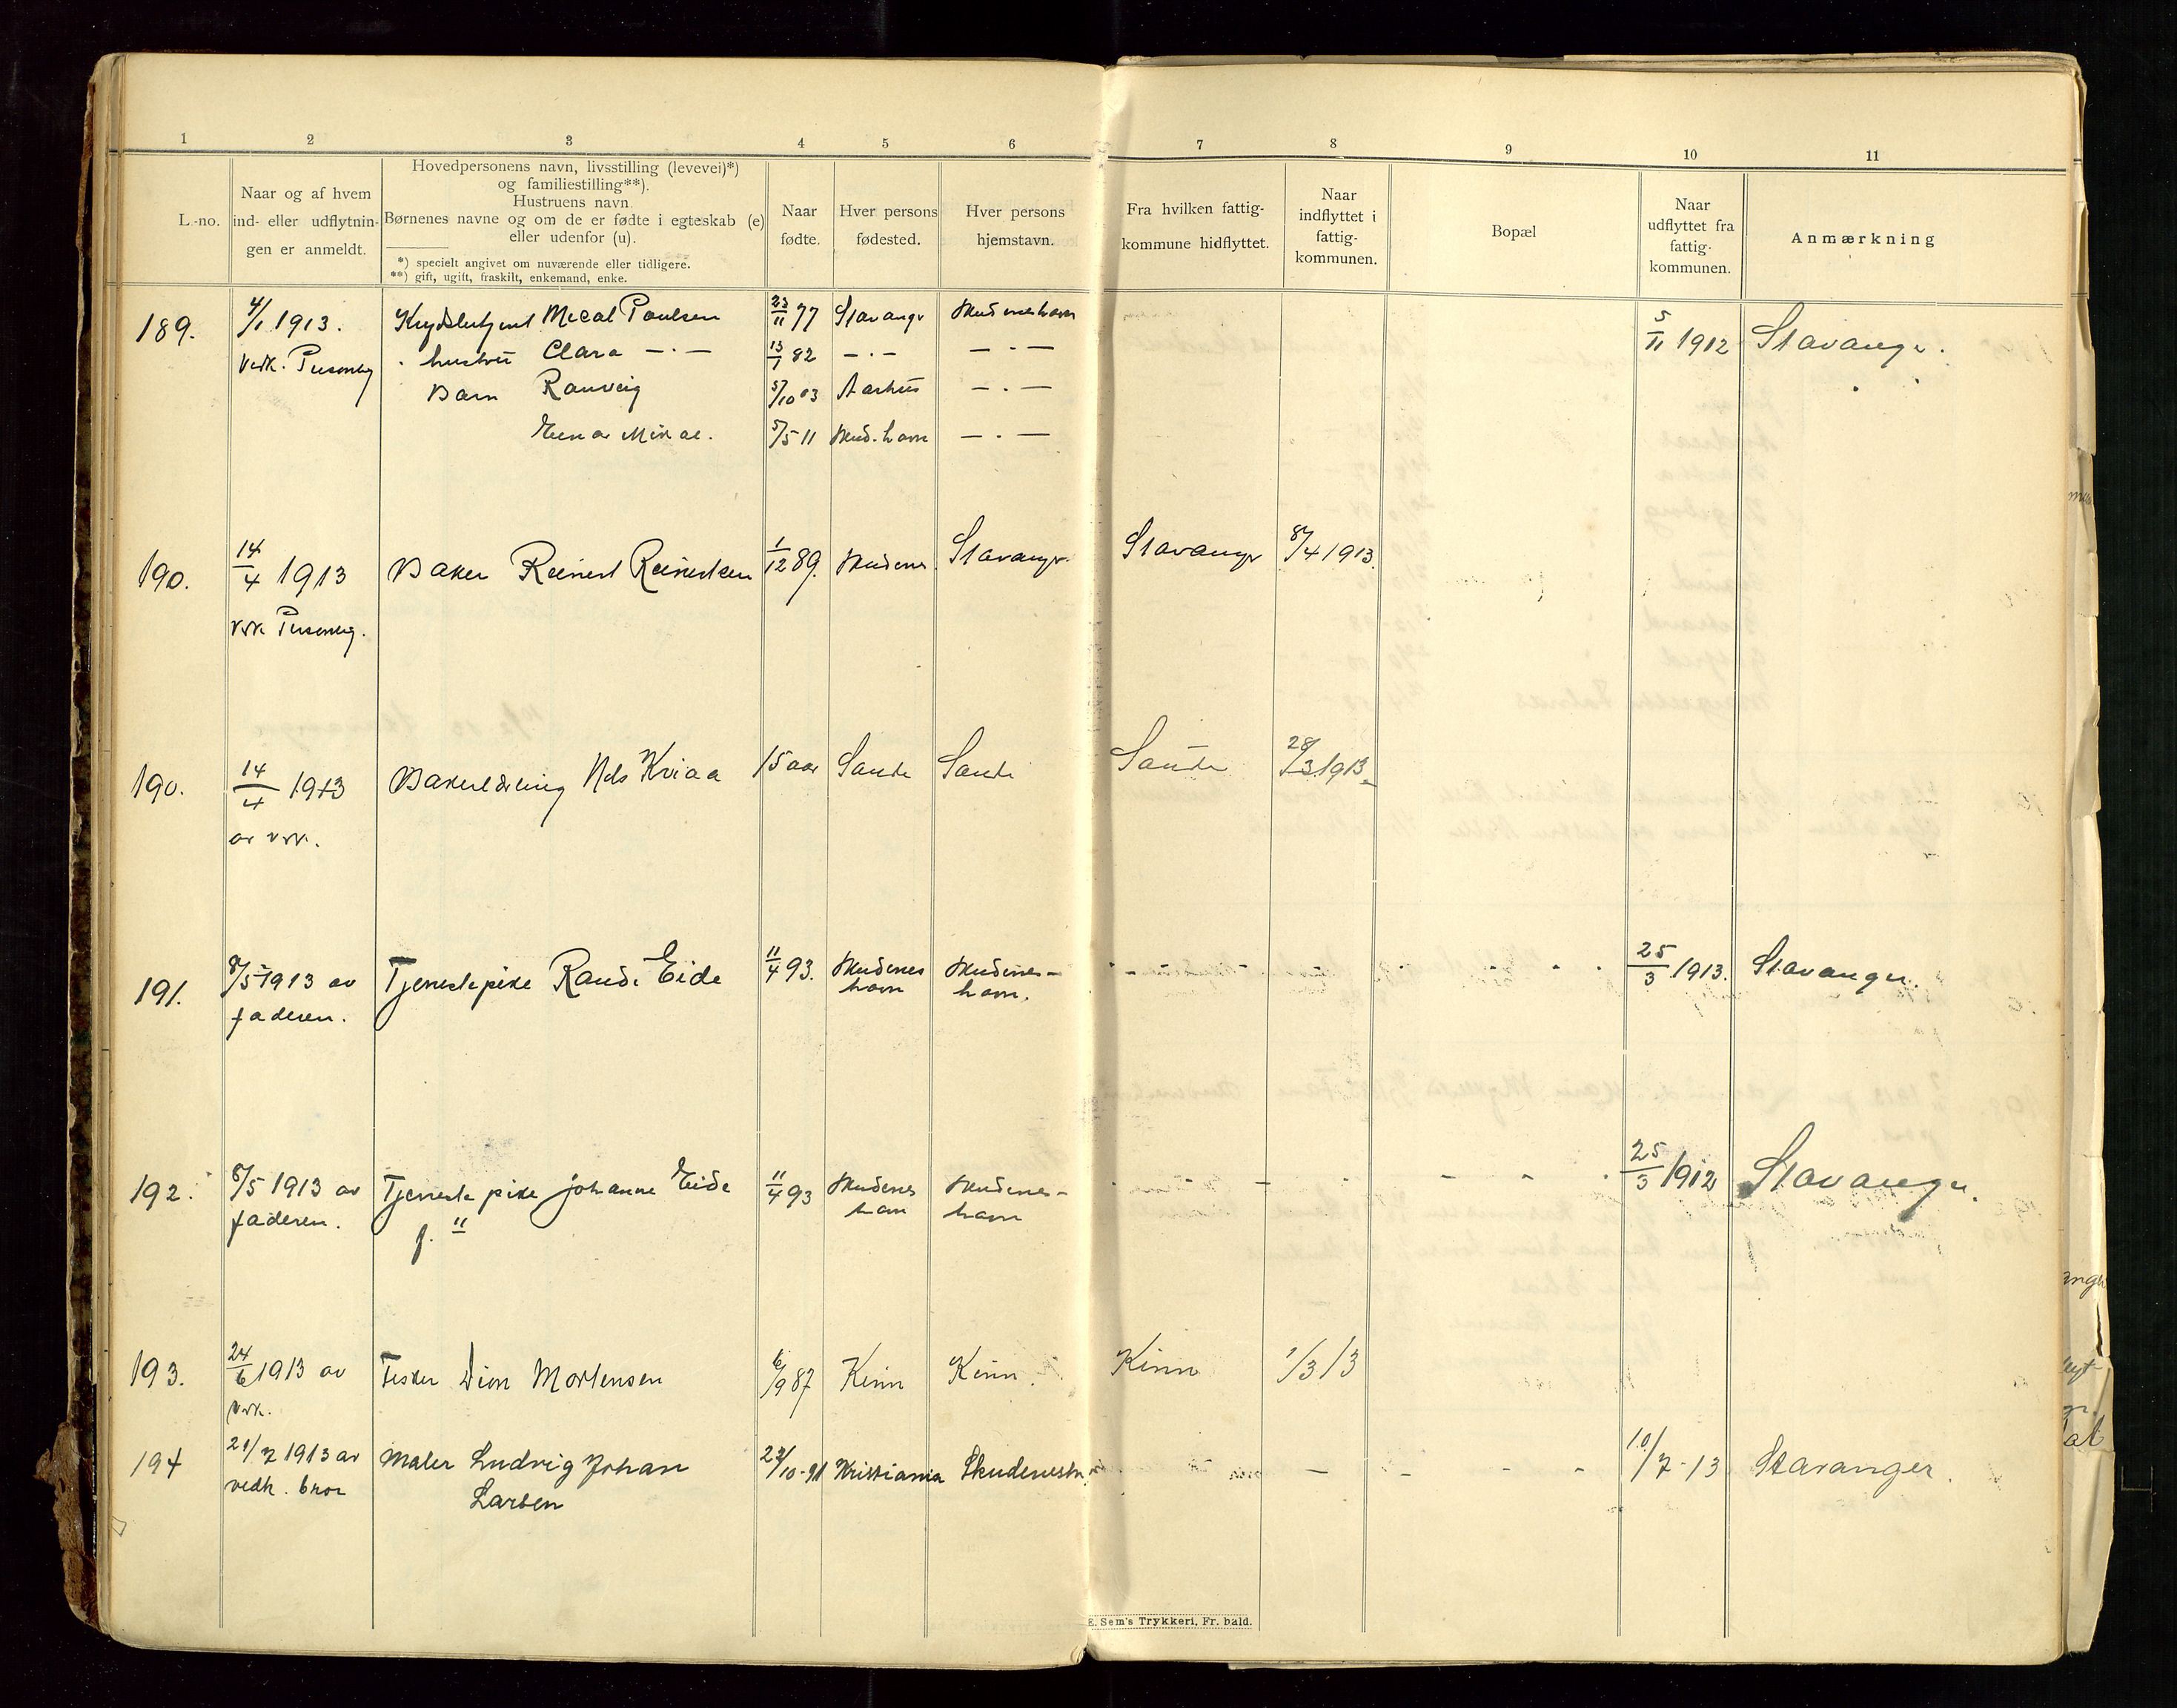 1 2 3 4 5 6 7 8 9 10 11
L.-no.
Naar og af hvem
ind- eller udflytnin-
gen er anmeldt.
Hovedpersonens navn, livsstilling (levevei)*)
og familiestilling**).
Hustruens navn.
Børnenes navne og om de er fødte i egteskab (e)
eller udenfor (u).
*) specielt angivet om nuværende eller tidligere.
**) gift, ugift, fraskilt, enkemand, enke.
Naar
fødte.
Hver persons
fødested.
Hver persons
hjemstavn.
Fra hvilken fattig-
kommune hidflyttet.
Naar
indflyttet i
fattig-
kommunen.
Bopæl
Naar
udflyttet fra
fattig-
kommunen.
Anmærkning
189. 4/1 1913. Mical Paulsen 23/11 77 Stavangr Skudeneshavn 5/11 1912 Stavanger.
Vedk. Personlig hustru Clara — . — 13/1 82 — . — — . —
Barn Rauveig 5/10 03 Aarhus — . —
Einar Mikal. 5/5 11 Skud.havn — . —
190. 14/4 1913 Baker Reinert Reinertsen 1/12 89. Skudenes Stavangr. Stavangr 8/4 1913.
Vedk Personlig.
190. 14/4 1913 Bakerlærling Nils Kviaa 15 aar Saude Saude Saude 28/3 1913.
av vedk.
191. 8/5 1913 av Tjenestepike Randi Eide 11/4 93. Skudenes Skudenes- 25/3 1913. Stavanger.
faderen. havn havn.
192. 8/5 1913 av Tjenestepike Johanne Eide 11/4 93 Skudenes Skudenes- 25/3 1912 Stavanger.
faderen. f. " havn havn
193. 24/6 1913 av Fisker Dion Mortensen 6/9 87 Kinn Kinn. Kinn 1/3 13
vedk.
194 21/7 1913 av Maler Ludvig Johan 22/10-91 Kristiania Skudenesh. 10/7-13 Stavanger.
vedk. bror Larsen
E. Sem's Trykkeri, Fr. hald.